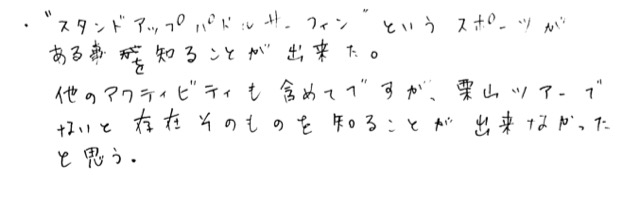 ・"スタンドアップパドルサーフィン"というスポーツが
ある事を知ることが出来た。
他のアクティビティも含めてですが、栗山ツアーで
ないと存在そのものを知ることが出来なかった
と思う。